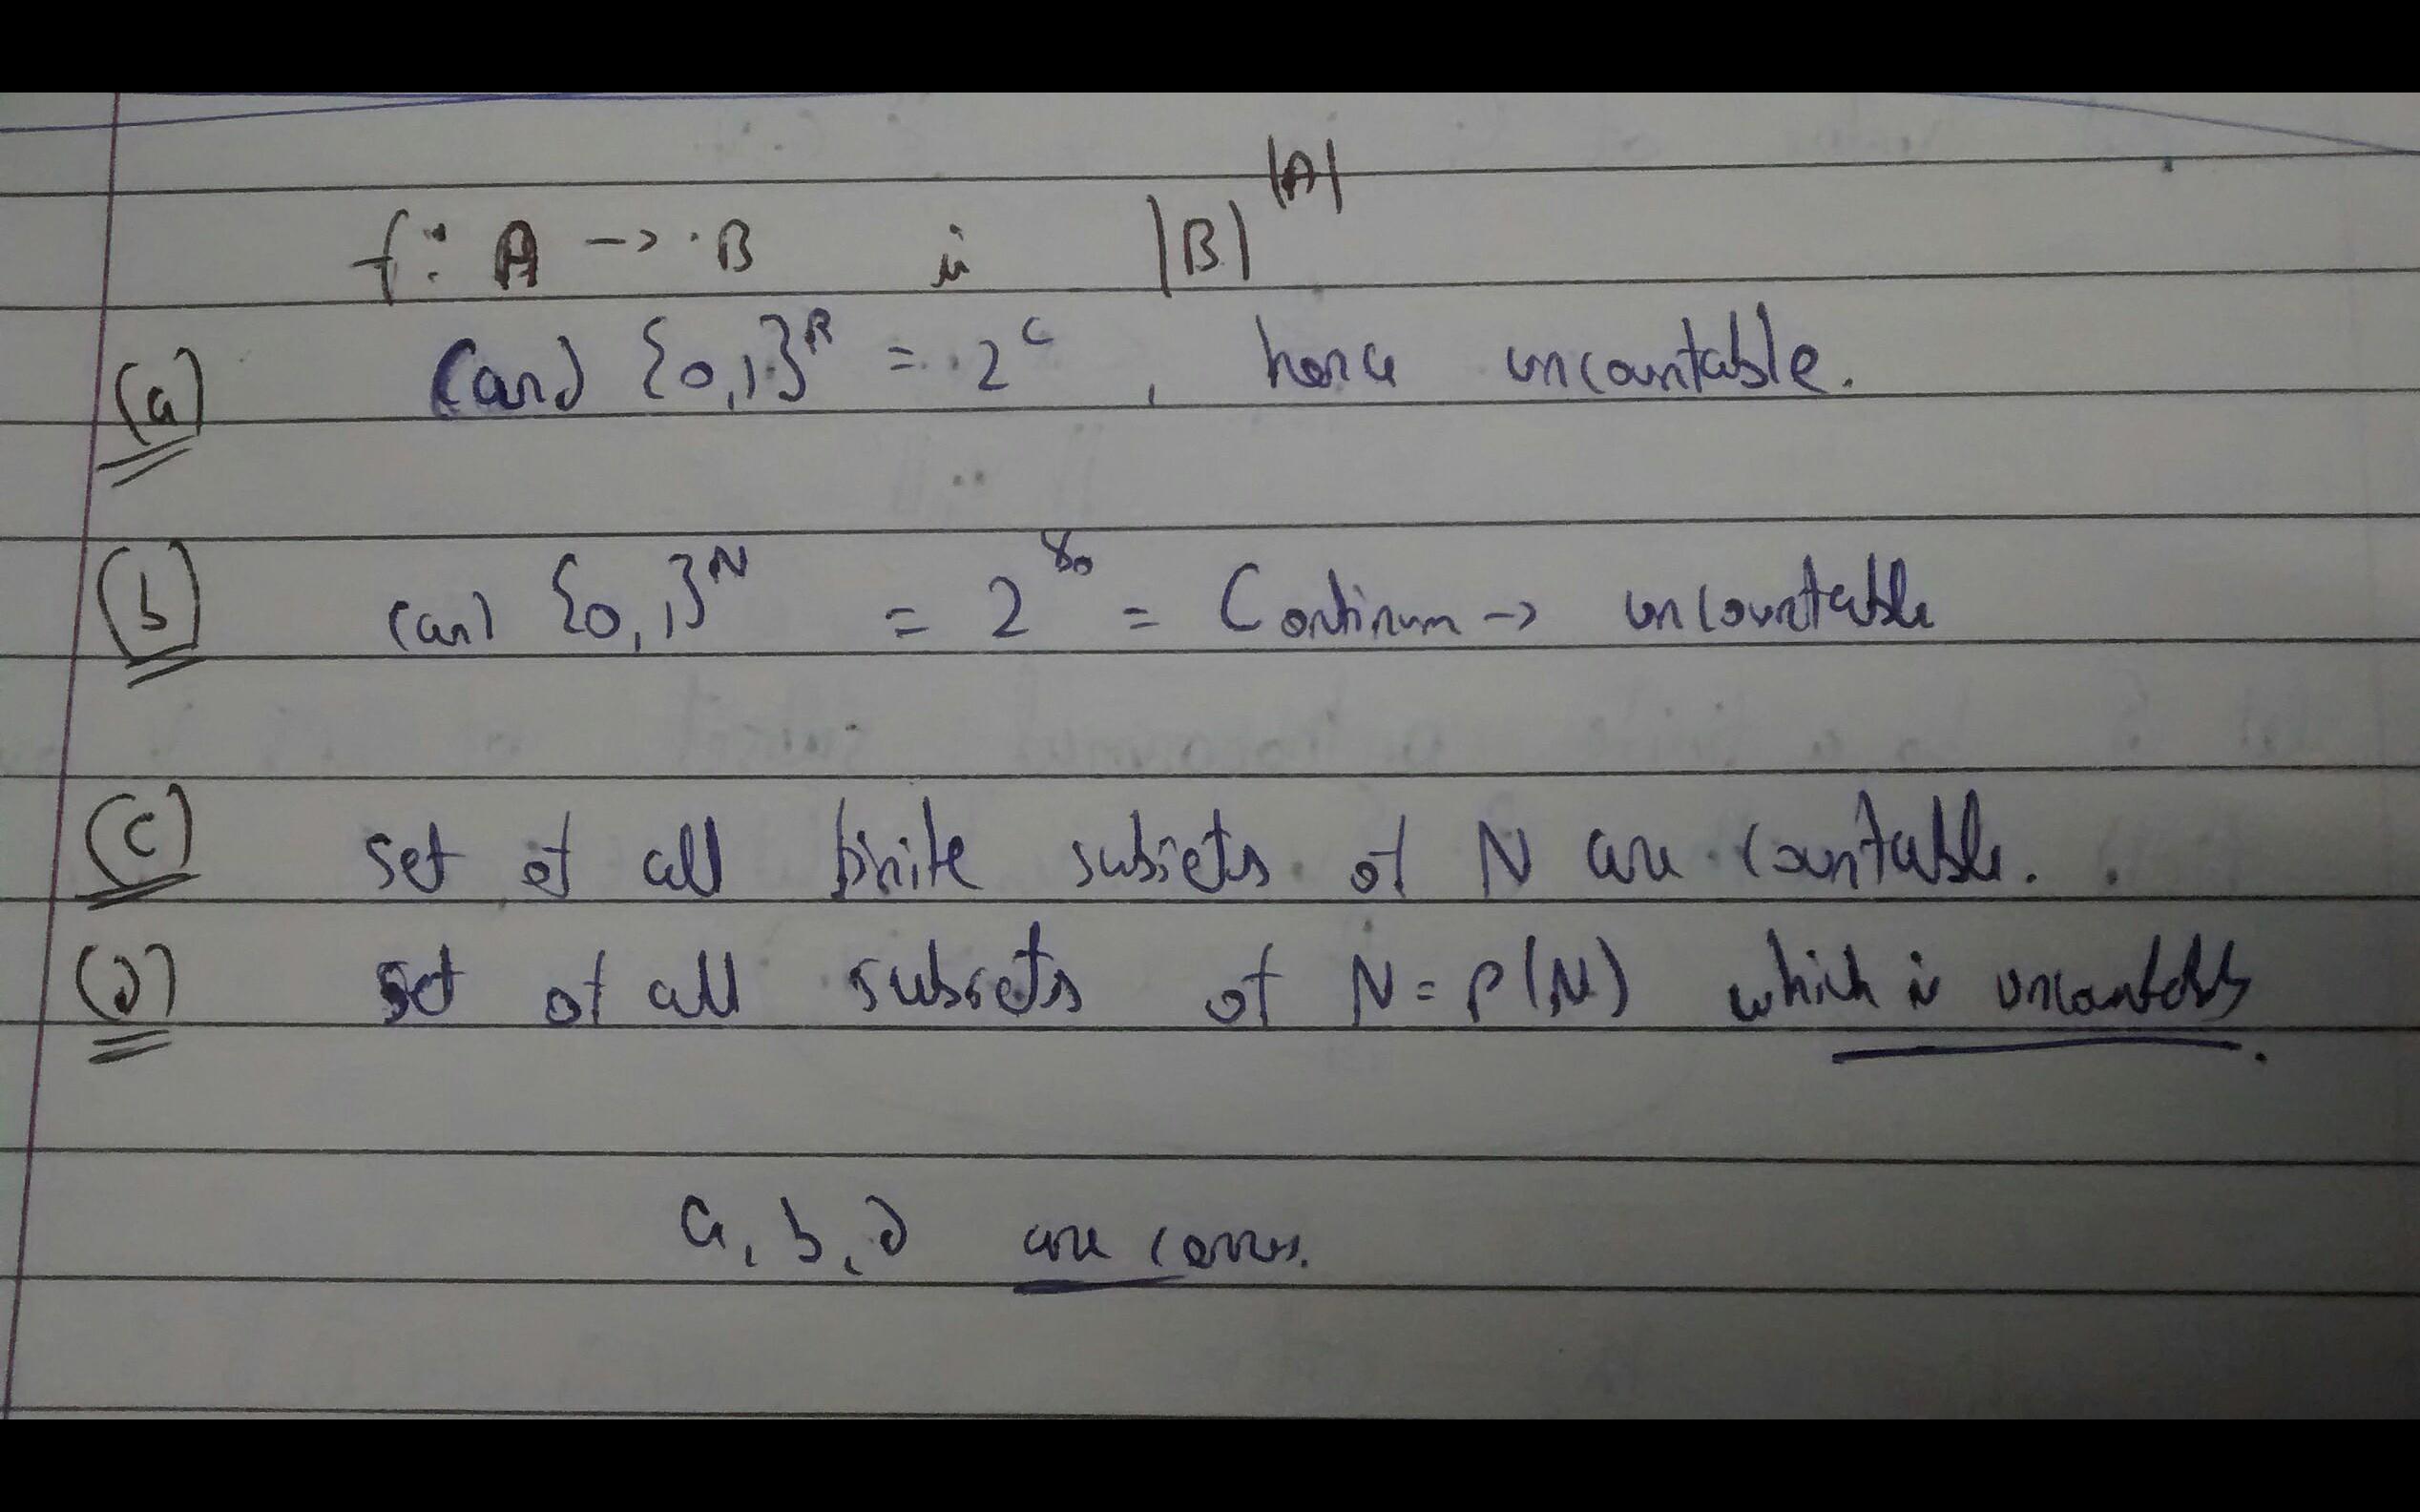 f: A -> B is |B|^|A|
(a) Card {0,1}^R = 2^c , hence uncountable.
(b) card {0,1}^N = 2^ℵ₀ = Continum -> uncountable
(c) set of all finite subsets of N are countable.
(d) set of all subsets of N = P(N) which is uncountable.
a, b, d are